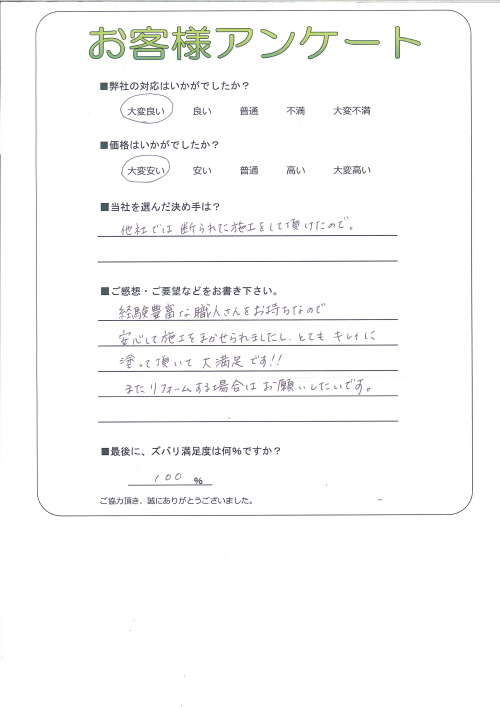 お客様アンケート
■弊社の対応はいかがでしたか？
大変良い 良い 普通 不満 大変不満
■価格はいかがでしたか？
大変安い 安い 普通 高い 大変高い
■当社を選んだ決め手は？
他社では断られた施工をして頂けたので。
■ご感想・ご要望などをお書き下さい。
経験豊富な職人さんをお持ちなので
安心して施工をまかせられましたし、とてもキレイに
塗って頂いて大満足です!!
またリフォームする場合はお願いしたいです。
■最後に、ズバリ満足度は何%ですか？
100 %
ご協力頂き、誠にありがとうございました。